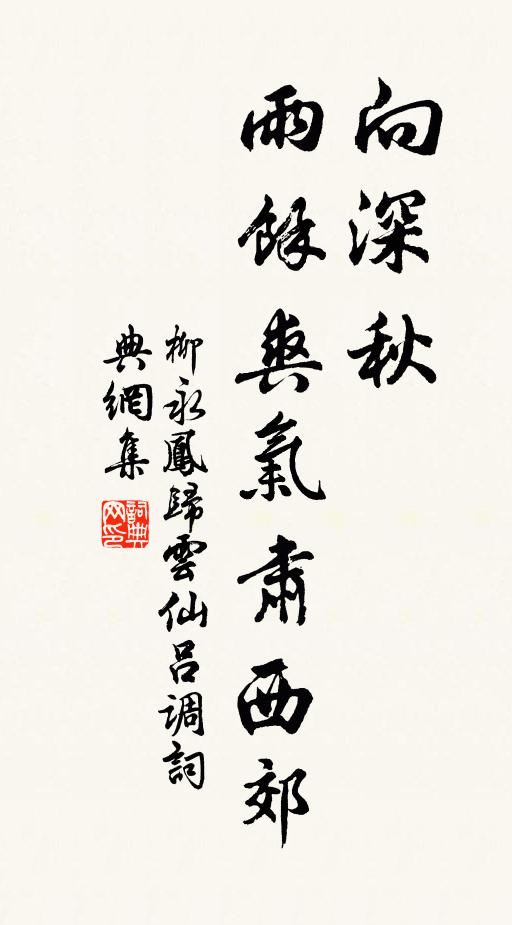 向深秋
雨餘爽氣肅西郊
柳永鳳歸雲仙呂调詞
典網集
詞典
网印